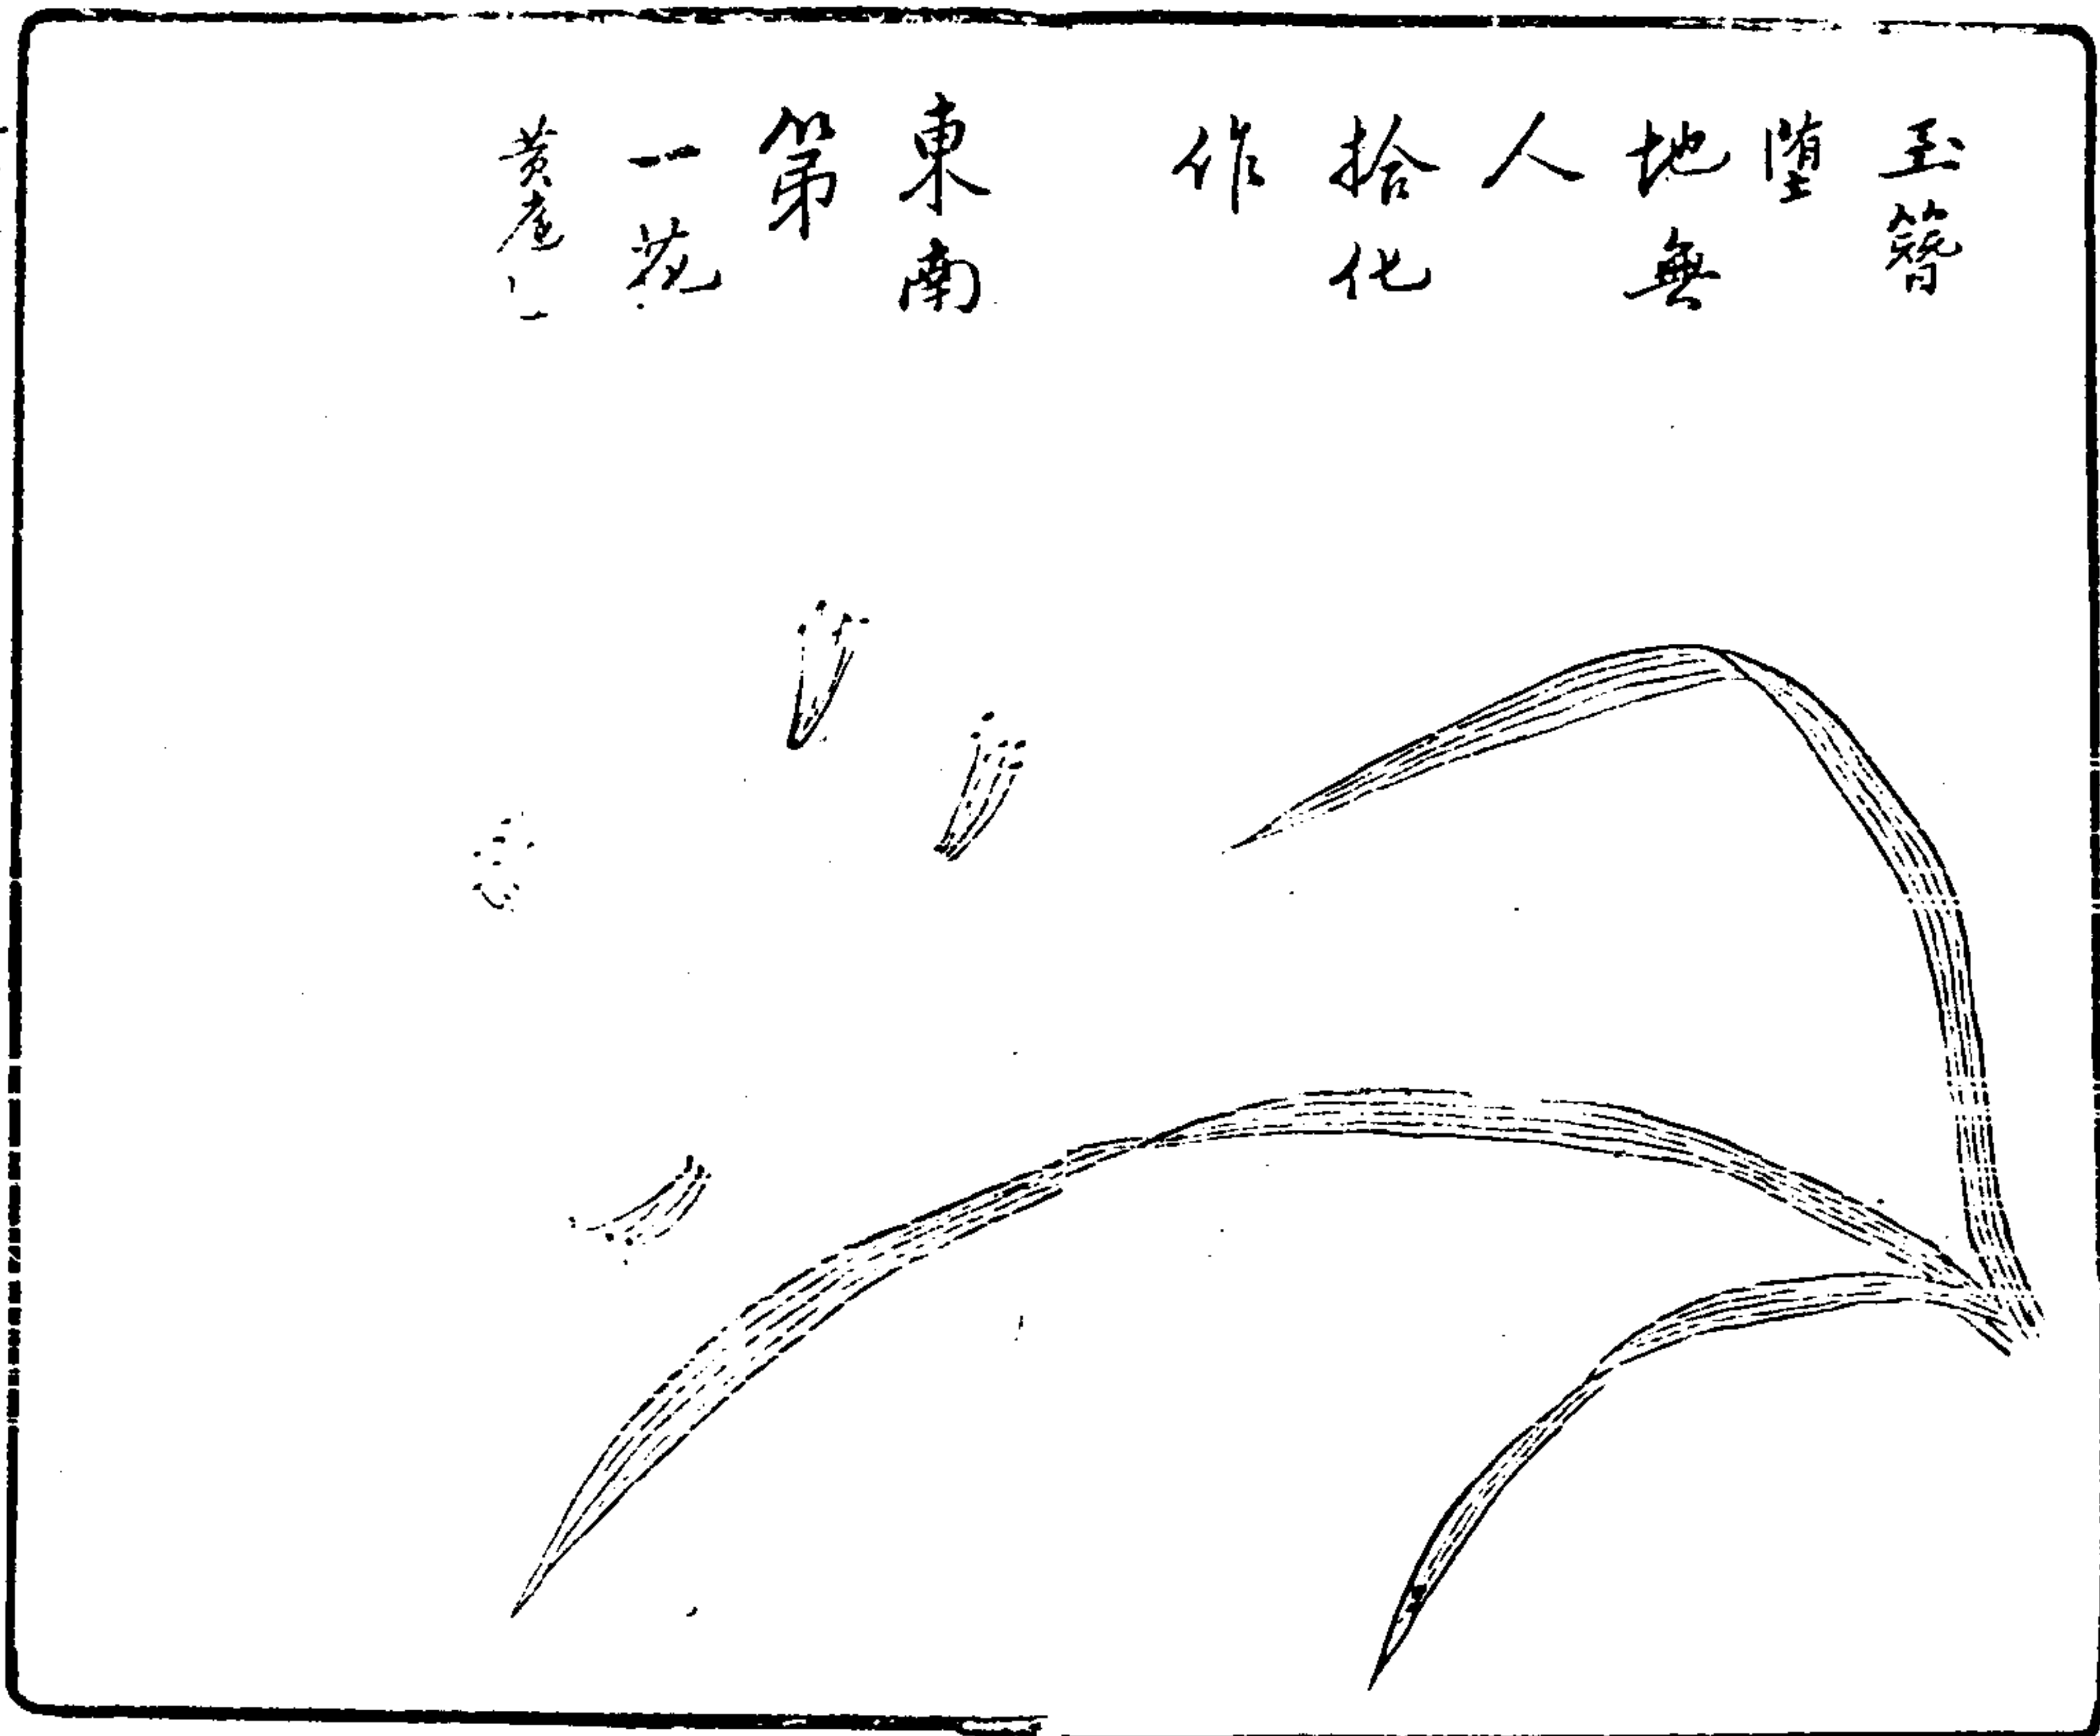 玉簪
堕
地無
人
拾化
作
東南
第
一花
黄